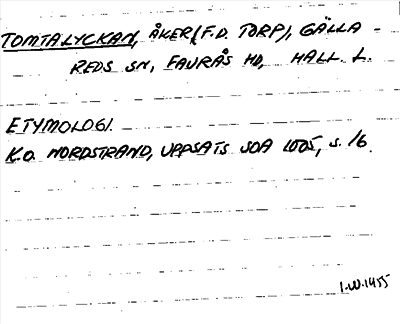 TOMTALYCKAN, ÅKER (F.D. TORP), GÄLLA-
REDS SN, FAURÅS HD, HALL. L.
ETYMOLOGI.
K.O. NORDSTRAND, UPPSATS SOA 1005, S. 16.
I.W.1955